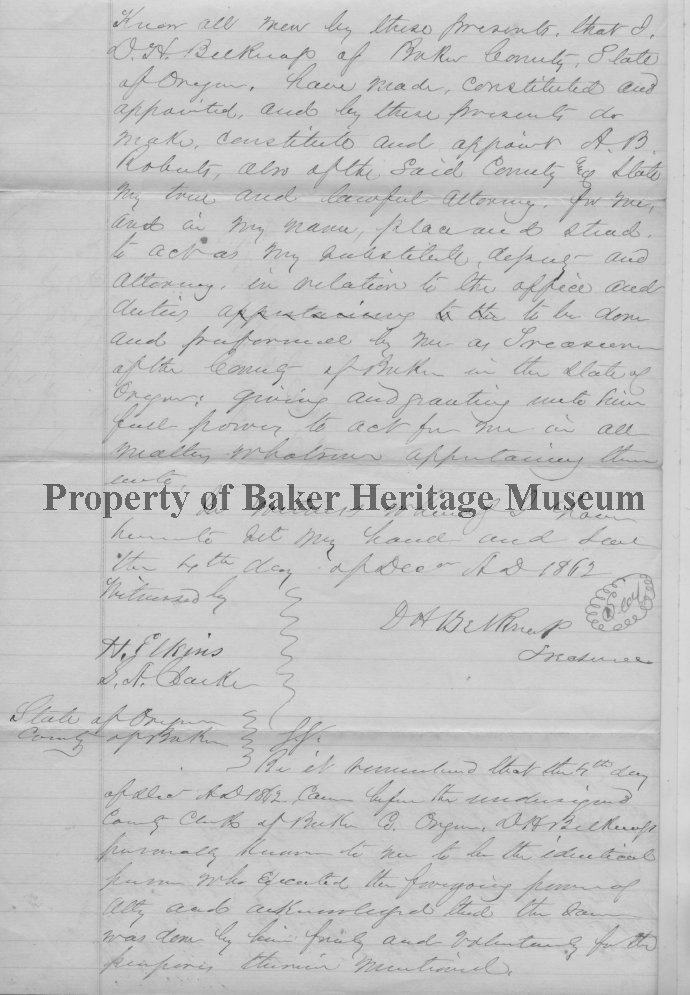 Know all men by these presents, that I,
D. H. Belknap of Baker County, State
of Oregon, have made, constituted and
appointed, and by these presents do
make, constitute and appoint A. B.
Roberts, also of the said County & State
my true and lawful Attorney, for me,
and in my name, place and stead,
to act as my substitute, deputy and
Attorney, in relation to the office and
duties appertaining to the to be done
and preformed by me as Treasurer
of the County of Baker in the State of
Oregon: giving and granting unto him
full power, to act for me in all
matters whatsoever appertaining there
unto.
In witness whereof I have
Property of Baker Heritage Museum
hereunto set my hand and seal
the 4th day of Decr A D 1862
Witnessed by
D H Belknap
Treasurer
H. Elkins
State of Oregon
County of Baker } S.S.
Be it remembered that the 4th day
of Decr A D 1862 Came before the undersigned
County Clerk of Baker Co. Oregon, D H Belknap
personally known to me to be the identical
person who executed the foregoing power of
Atty and acknowledged that the same
was done by him freely and voluntarily for the
purposes therein mentioned.